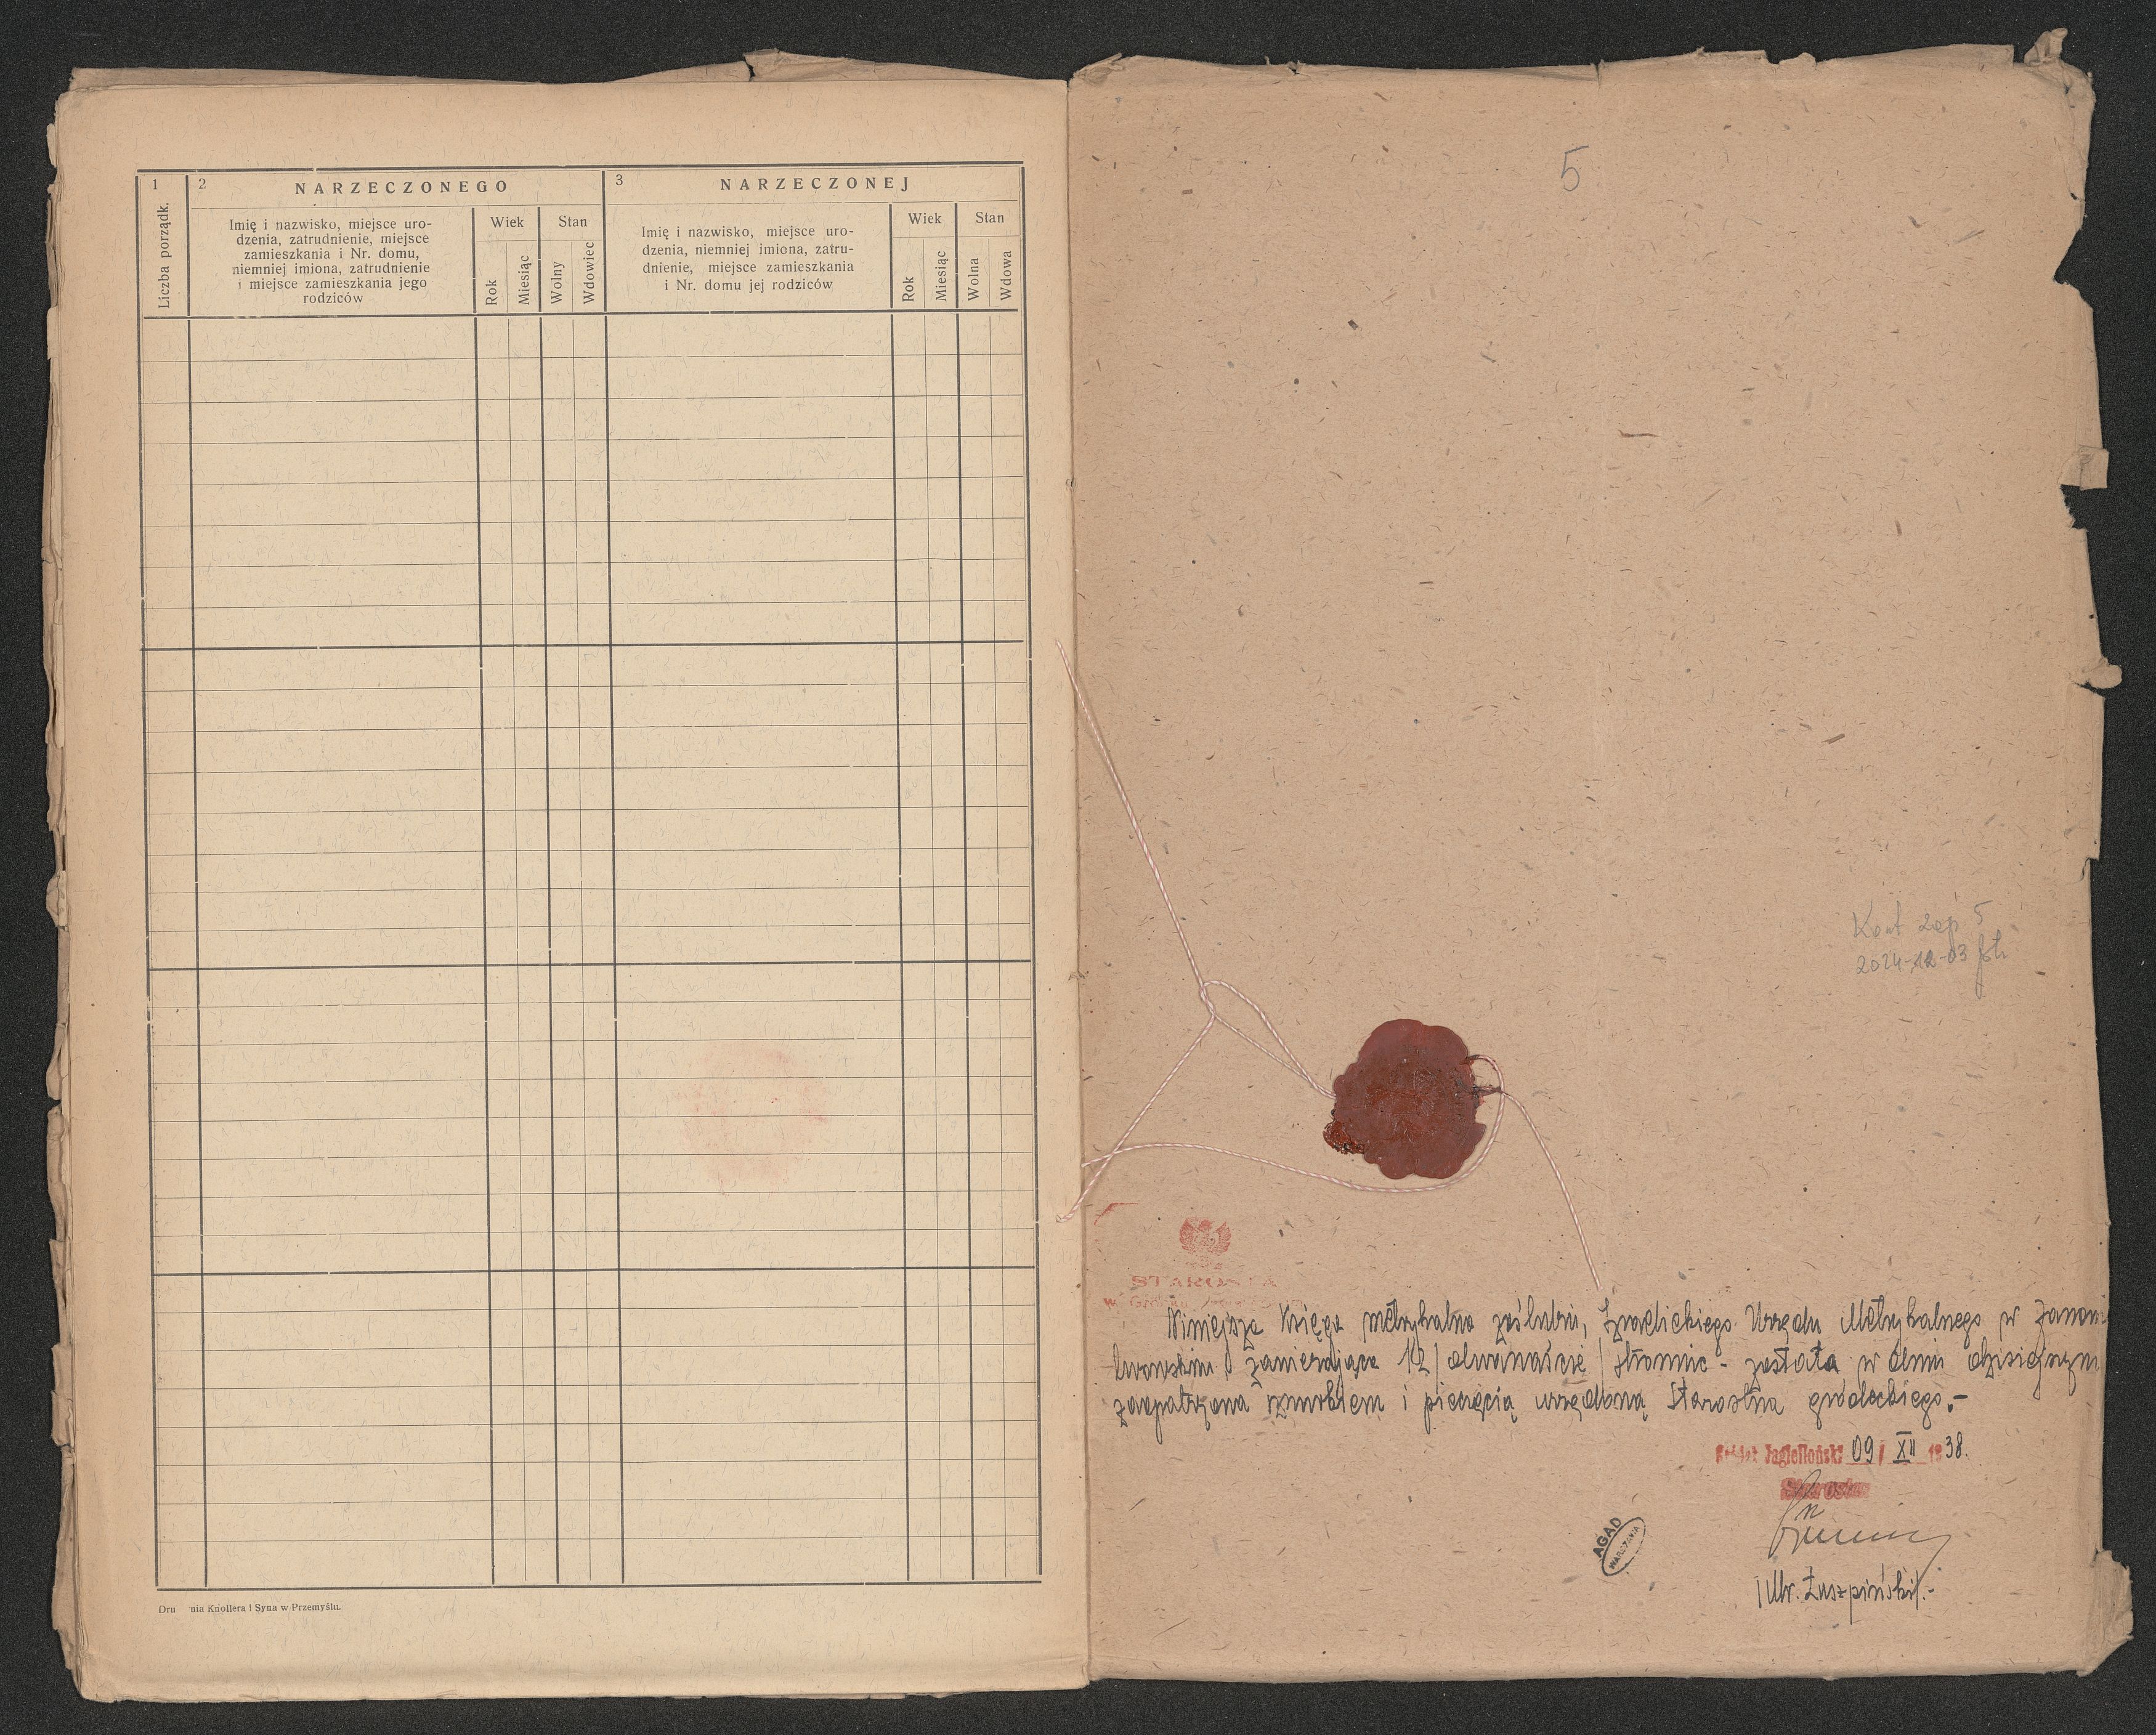 1
Liczba porządk.
2
NARZECZONEGO
Imię i nazwisko, miejsce uro-
dzenia, zatrudnienie, miejsce
zamieszkania i Nr. domu,
niemniej imiona, zatrudnienie
i miejsce zamieszkania jego
rodziców
Wiek
Rok
Miesiąc
Stan
Wolny
Wdowiec
3
NARZECZONEJ
Imię i nazwisko, miejsce uro-
dzenia, niemniej imiona, zatru-
dnienie, miejsce zamieszkania
i Nr. domu jej rodziców
Wiek
Rok
Miesiąc
Stan
Wolna
Wdowa
Dru nia Knollera i Syna w Przemyślu.
5
2024-12-03
STAROSTA
Niniejsza Księga metrykalna zaślubin, Izraelickiego Urzędu Metrykalnego w Janowi
Lwowskim, zawierająca 12/dwanaście/stronnic - została w dniu dzisiejszym
zaopatrzona sznurkiem i pieczęcią urzędową Starostwa gródeckiego.-
Gródek Jagielloński 09/XII 1938.
Starosta
AGAD
WARSZAWA
/Mr. Łuszpiński/.-